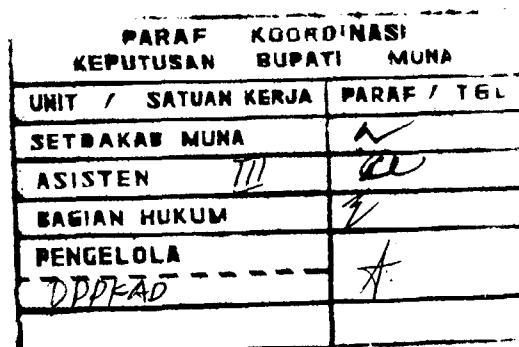 PARAF KOORDINASI
KEPUTUSAN BUPATI MUNA
UNIT / SATUAN KERJA PARAF / TGL
SETDAKAB MUNA
ASISTEN III
BAGIAN HUKUM
PENGELOLA
DPPKAD